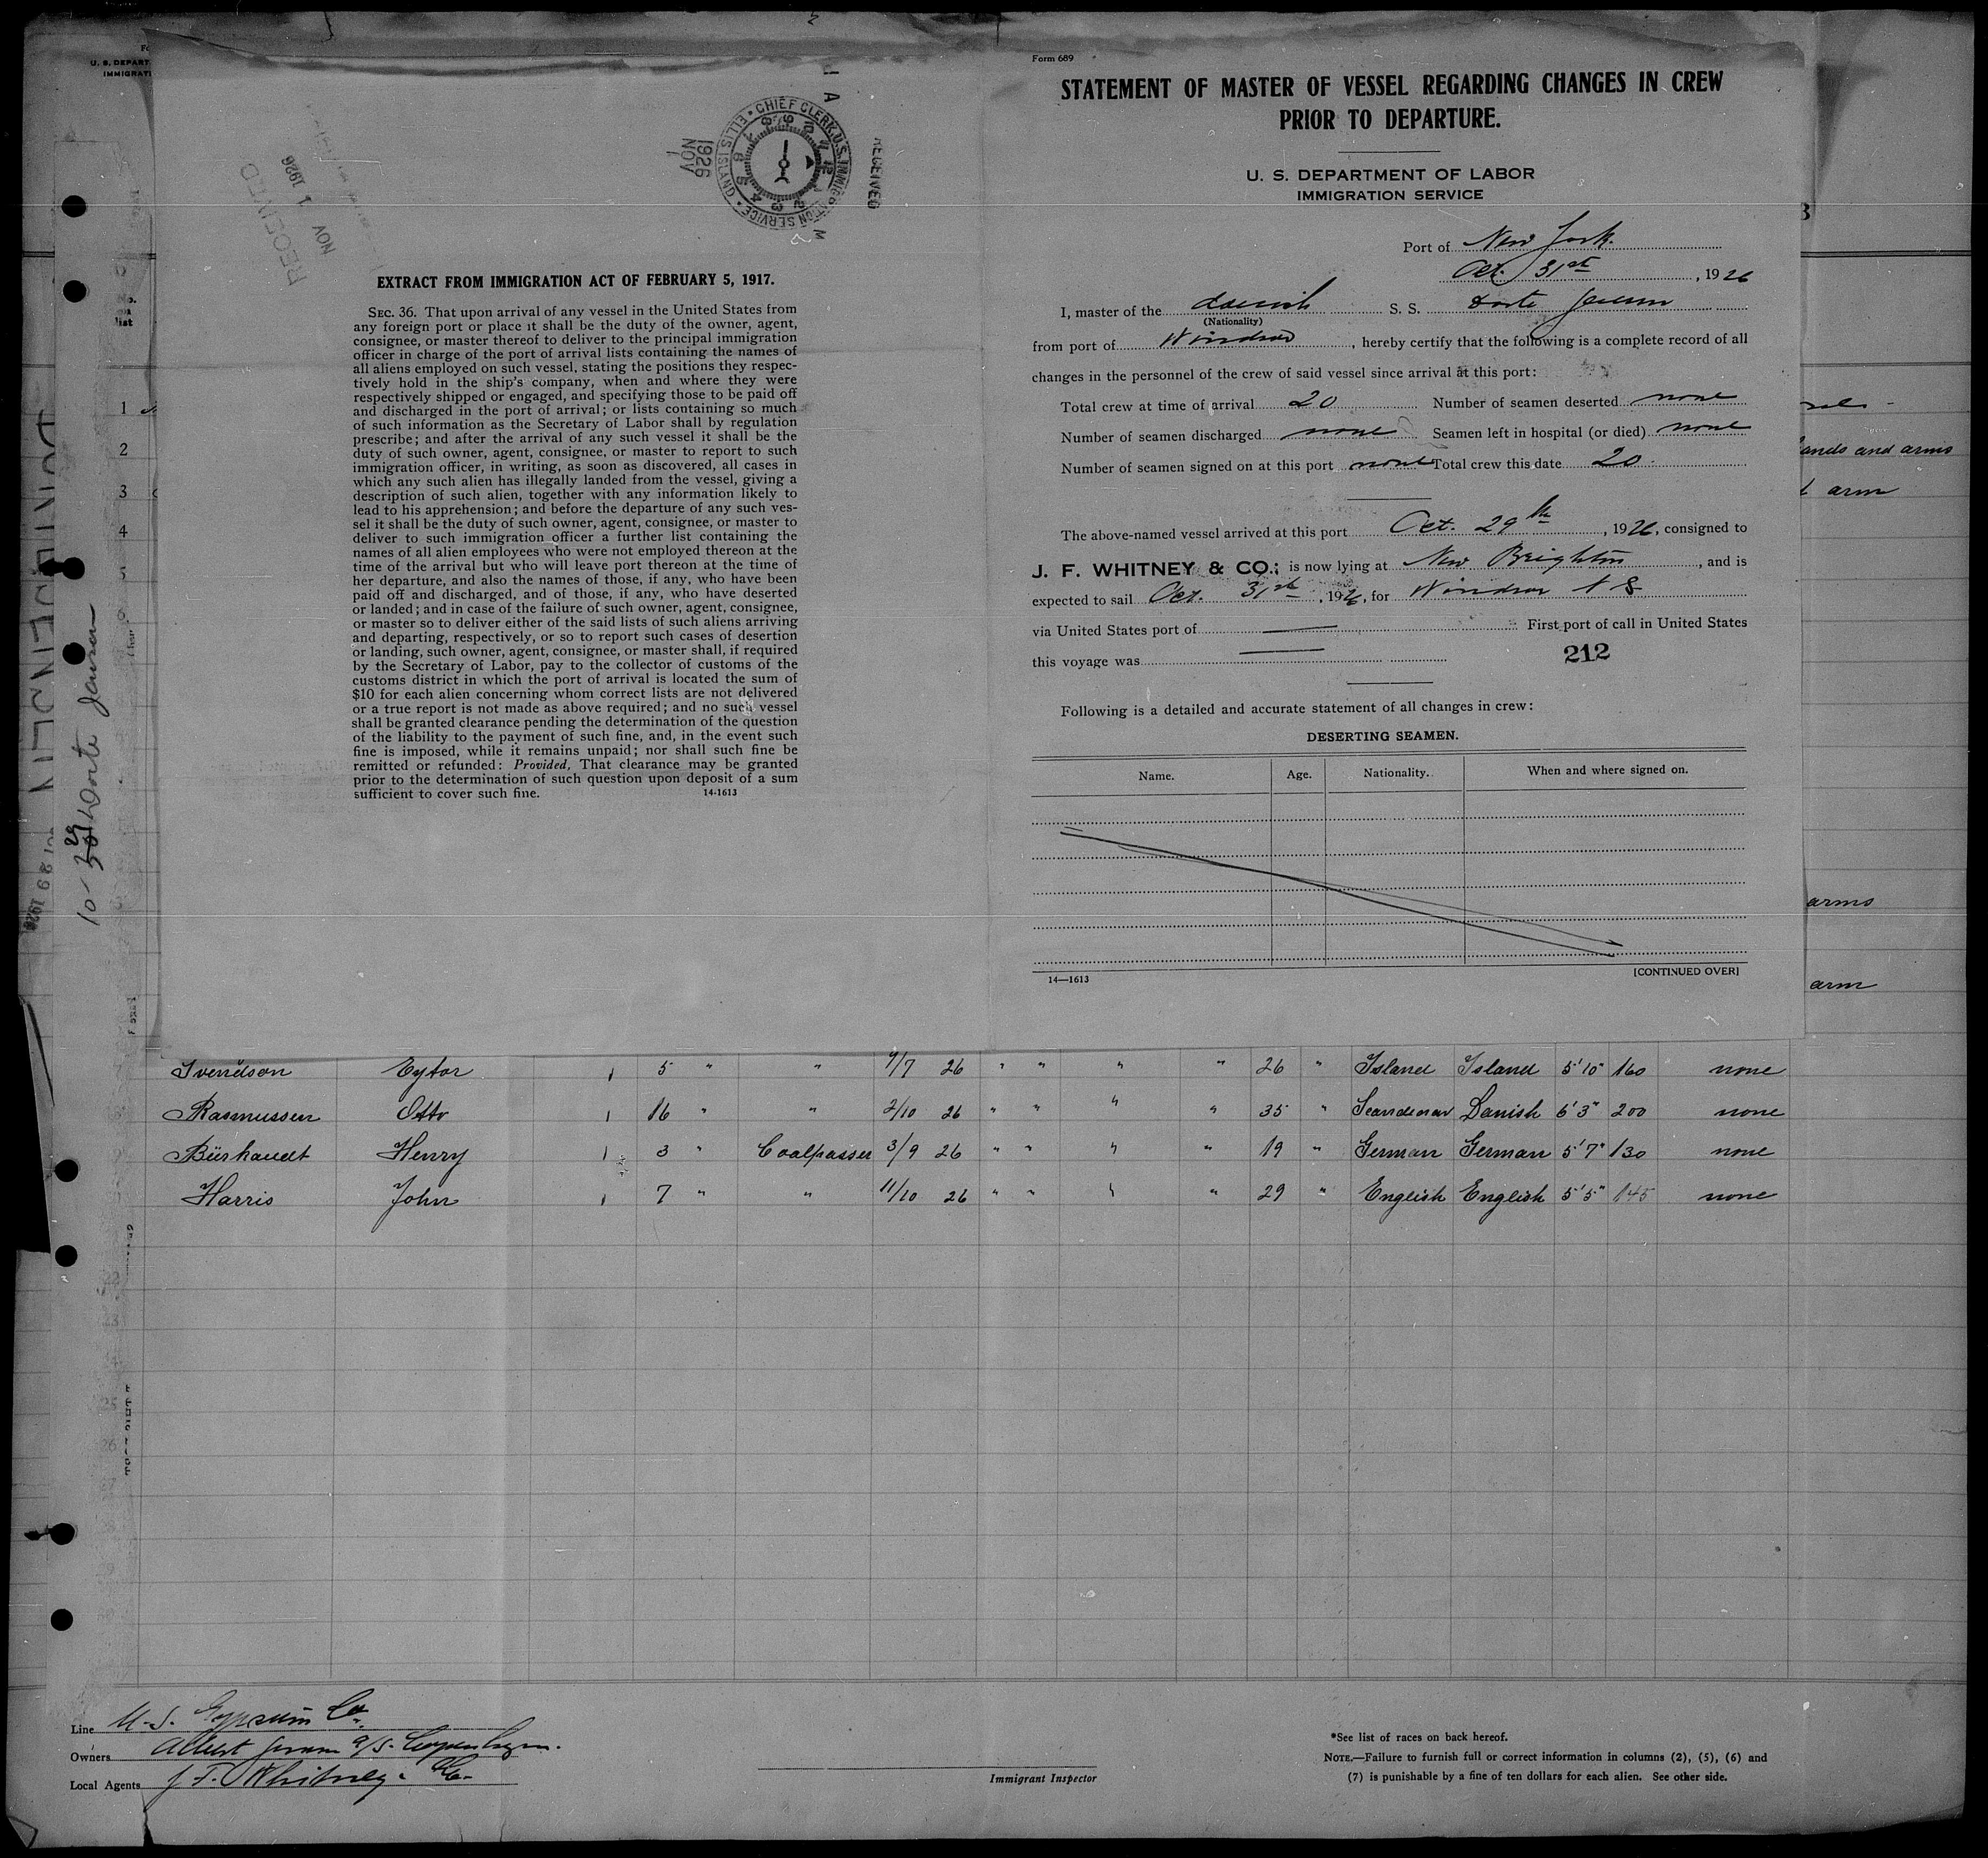 U. S. DEPART
IMMIGRATI
RECEIVED
NOV 1 1926
CHIEF CLERK, U.S. IMMIGRATION SERVICE • ELLIS ISLAND •
1926
NOV
RECEIVED
EXTRACT FROM IMMIGRATION ACT OF FEBRUARY 5, 1917.
SEC. 36. That upon arrival of any vessel in the United States from
any foreign port or place it shall be the duty of the owner, agent,
consignee, or master thereof to deliver to the principal immigration
officer in charge of the port of arrival lists containing the names of
all aliens employed on such vessel, stating the positions they respec-
tively hold in the ship's company, when and where they were
respectively shipped or engaged, and specifying those to be paid off
and discharged in the port of arrival; or lists containing so much
of such information as the Secretary of Labor shall by regulation
prescribe; and after the arrival of any such vessel it shall be the
duty of such owner, agent, consignee, or master to report to such
immigration officer, in writing, as soon as discovered, all cases in
which any such alien has illegally landed from the vessel, giving a
description of such alien, together with any information likely to
lead to his apprehension; and before the departure of any such ves-
sel it shall be the duty of such owner, agent, consignee, or master to
deliver to such immigration officer a further list containing the
names of all alien employees who were not employed thereon at the
time of the arrival but who will leave port thereon at the time of
her departure, and also the names of those, if any, who have been
paid off and discharged, and of those, if any, who have deserted
or landed; and in case of the failure of such owner, agent, consignee,
or master so to deliver either of the said lists of such aliens arriving
and departing, respectively, or so to report such cases of desertion
or landing, such owner, agent, consignee, or master shall, if required
by the Secretary of Labor, pay to the collector of customs of the
customs district in which the port of arrival is located the sum of
$10 for each alien concerning whom correct lists are not delivered
or a true report is not made as above required; and no such vessel
shall be granted clearance pending the determination of the question
of the liability to the payment of such fine, and, in the event such
fine is imposed, while it remains unpaid; nor shall such fine be
remitted or refunded: Provided, That clearance may be granted
prior to the determination of such question upon deposit of a sum
sufficient to cover such fine. 14-1613
Form 689
STATEMENT OF MASTER OF VESSEL REGARDING CHANGES IN CREW
PRIOR TO DEPARTURE.
U. S. DEPARTMENT OF LABOR
IMMIGRATION SERVICE
Port of New York.
Oct. 31st, 1926
I, master of the danish S. S. Dorte Jensen
(Nationality)
from port of Windsor, hereby certify that the following is a complete record of all
changes in the personnel of the crew of said vessel since arrival at this port:
Total crew at time of arrival 20 Number of seamen deserted none
Number of seamen discharged none Seamen left in hospital (or died) none
Number of seamen signed on at this port none Total crew this date 20
The above-named vessel arrived at this port Oct. 29th, 1926, consigned to
J. F. WHITNEY & CO.; is now lying at New Brighton, and is
expected to sail Oct. 31st, 1926, for Windsor N S
via United States port of First port of call in United States
this voyage was 212
Following is a detailed and accurate statement of all changes in crew:
DESERTING SEAMEN.
Name. Age. Nationality. When and where signed on.
14—1613 [CONTINUED OVER]
No.
list
1
2
3
4
5
6
10-29 Dorte Jensen
ands and arms
arm
arms
arm
Svendson Eytor 1 5 " " 9/7 26 " " " " 26 " Island Island 5'10" 160 none
Rasmussen Otto 1 16 " " 2/10 26 " " " " 35 " Scandinav Danish 6'3" 200 none
Bürhandt Henry 1 3 " Coalpasser 3/9 26 " " " " 19 " German German 5'7" 130 none
Harris John 1 7 " " 11/10 26 " " " " 29 " English English 5'5" 145 none
Line U.S. Gypsum Co.
Owners Albert Jensen A/S. Copenhagen.
Local Agents J. F. Whitney & Co.
Immigrant Inspector
*See list of races on back hereof.
NOTE.—Failure to furnish full or correct information in columns (2), (5), (6) and
(7) is punishable by a fine of ten dollars for each alien. See other side.